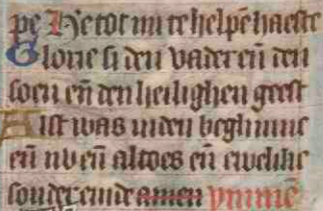 pe Here tot mi te helpē haeste
Glorie si den vader eñ den
soen eñ den heilighen geest
Alst was inden beghinne
eñ nv eñ altoes eñ ewelike
sonder einde amen ymmē